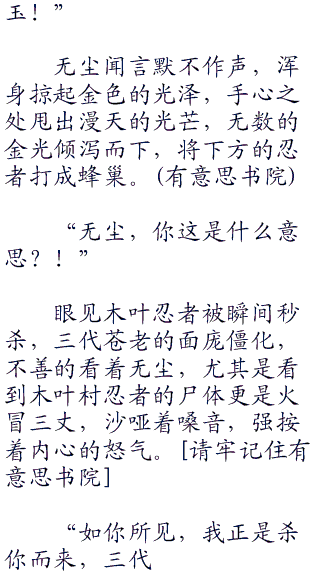 玉！”
无尘闻言默不作声，浑
身掠起金色的光泽，手心之
处甩出漫天的光芒，无数的
金光倾泻而下，将下方的忍
者打成蜂巢。(有意思书院)
“无尘，你这是什么意
思？！”
眼见木叶忍者被瞬间秒
杀，三代苍老的面庞僵化，
不善的看着无尘，尤其是看
到木叶村忍者的尸体更是火
冒三丈，沙哑着嗓音，强按
着内心的怒气。[请牢记住有
意思书院]
“如你所见，我正是杀
你而来，三代